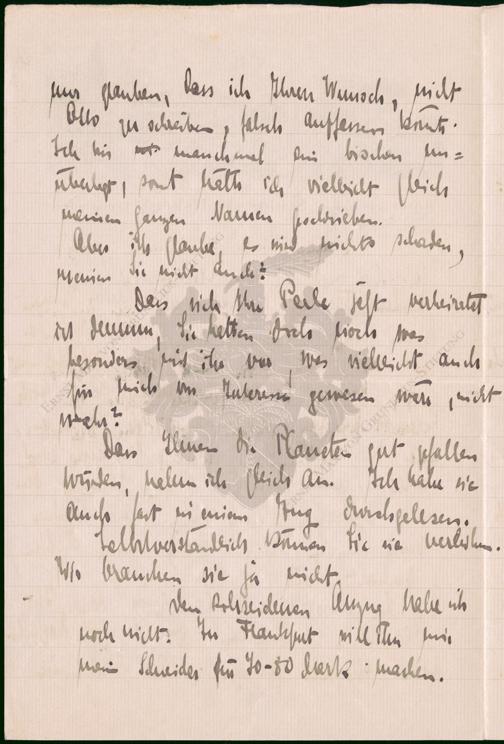 nur glauben, dass ich Ihren Wunsch, nicht
Otto zu schreiben, falsch auffassen könnte.
Ich bin manchmal ein bischen un=
überlegt, sonst hätte ich vielleicht gleich
meinen ganzen Namen geschrieben.
Aber ich glaube, es wird nichts schaden,
meinen Sie nicht auch?
Dass sich Ihre Perle jetzt verheiratet
ist dumm, Sie hatten doch noch was
besonders mit ihr vor, was vielleicht auch
für mich von Interesse gewesen wäre, nicht
wahr?
Dass Ihnen die Planeten gut gefallen
würden, nahm ich gleich an. Ich habe sie
auch fast in einem Zug durchgelesen.
Selbstverständlich können Sie sie verleihen.
Wir brauchen sie ja nicht.
Den rohseidenen Anzug habe ich
noch nicht. In Frankfurt will ihn mir
mein Schneider für 70-80 Mark machen.